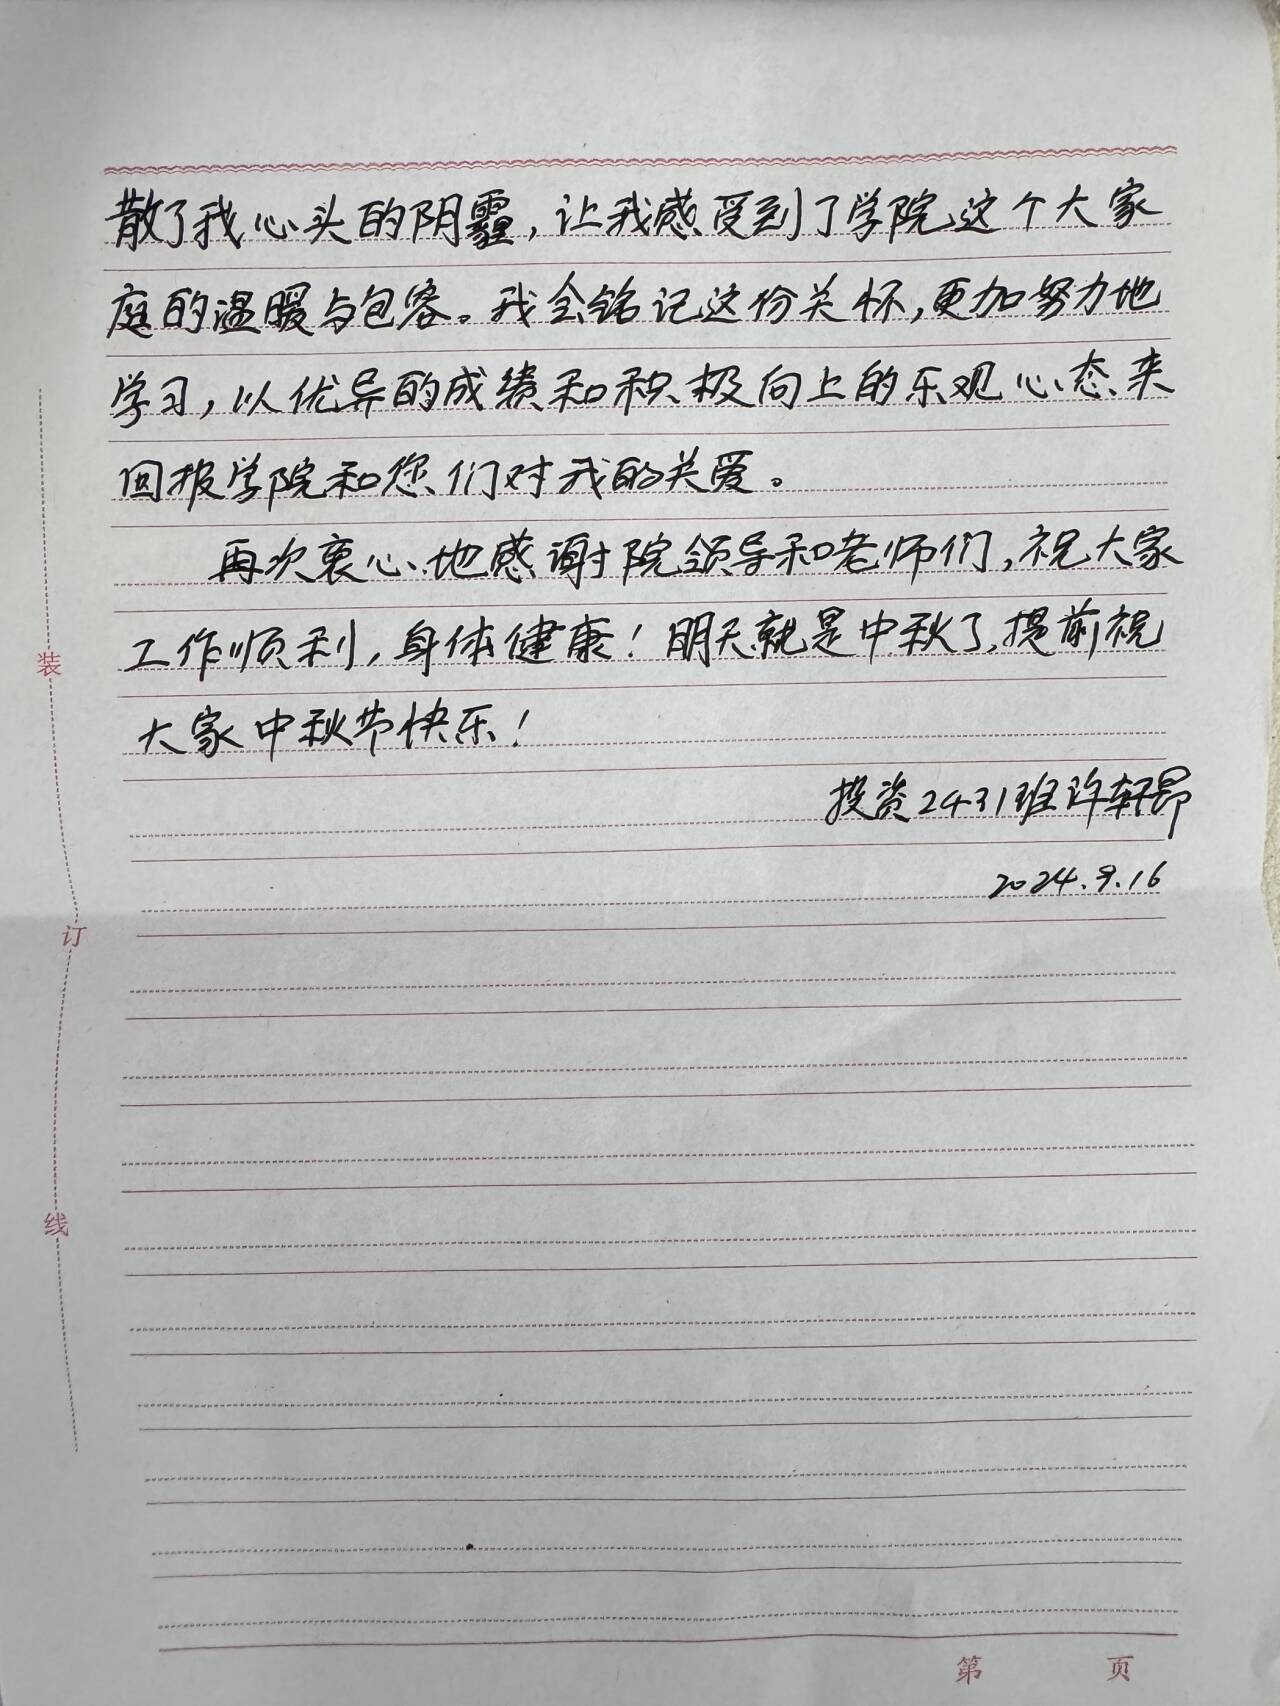 散了我心头的阴霾，让我感受到了学院这个大家
庭的温暖与包容。我会铭记这份关怀，更加努力地
学习，以优异的成绩和积极向上的乐观心态来
回报学院和您们对我的关爱。
再次衷心地感谢院领导和老师们，祝大家
工作顺利，身体健康！明天就是中秋了，提前祝
大家中秋节快乐！
投资2431班许轩昂
2024.9.16
装
订
线
第 页